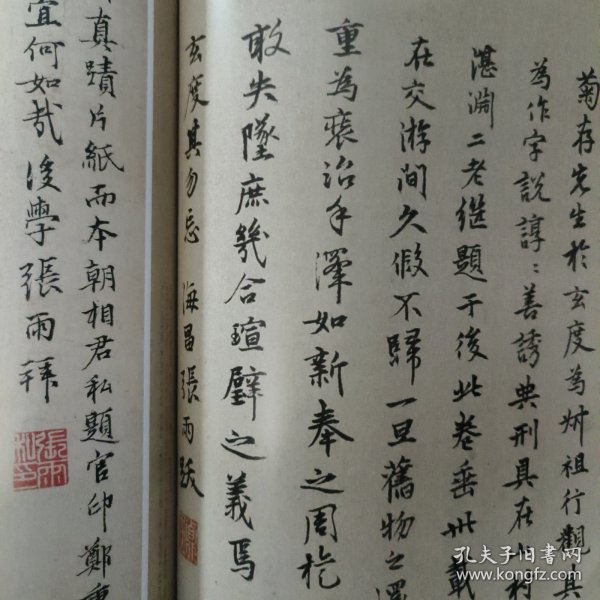 菊存先生於玄度為叔祖行觀其
為作字說諄〻善誘典刑具在
湛淵二老繼題于後此卷垂卅載
在交游間久假不歸一旦舊物之還
重為裝治手澤如新奉之周旋
敢失墜庶幾合瑄璧之義焉
玄度其勿忘 海昌張雨跋
真蹟片紙而本朝相君私題官印鄭重
宜何如哉後學張雨拜
孔夫子旧书网
www.kongfz.com